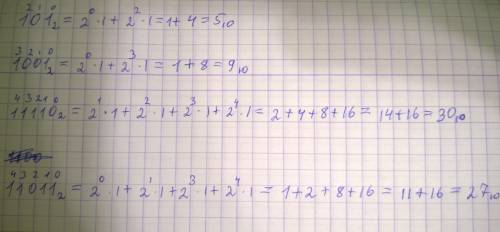 2 1 0
101₂ = 2⁰·1 + 2²·1 = 1 + 4 = 5₁₀
3 2 1 0
1001₂ = 2⁰·1 + 2³·1 = 1 + 8 = 9₁₀
4 3 2 1 0
11110₂ = 2¹·1 + 2²·1 + 2³·1 + 2⁴·1 = 2 + 4 + 8 + 16 = 14 + 16 = 30₁₀
4 3 2 1 0
11011₂ = 2⁰·1 + 2¹·1 + 2³·1 + 2⁴·1 = 1 + 2 + 8 + 16 = 11 + 16 = 27₁₀